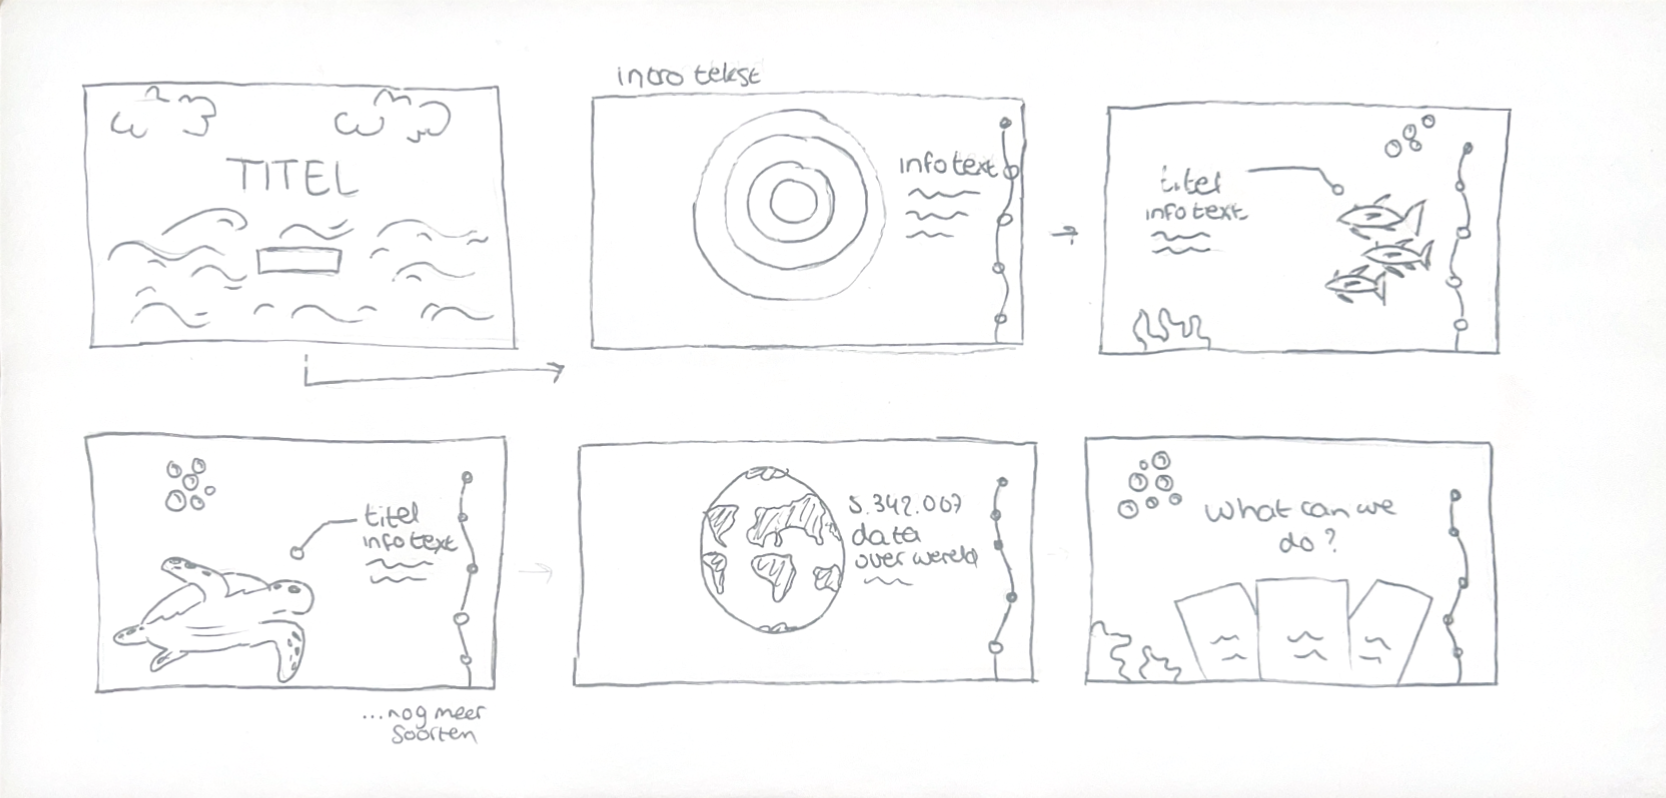 TITEL
intro tekst
info text
titel
info text
titel
info text
...nog meer
soorten
5.342.007
data
over wereld
What can we
do?